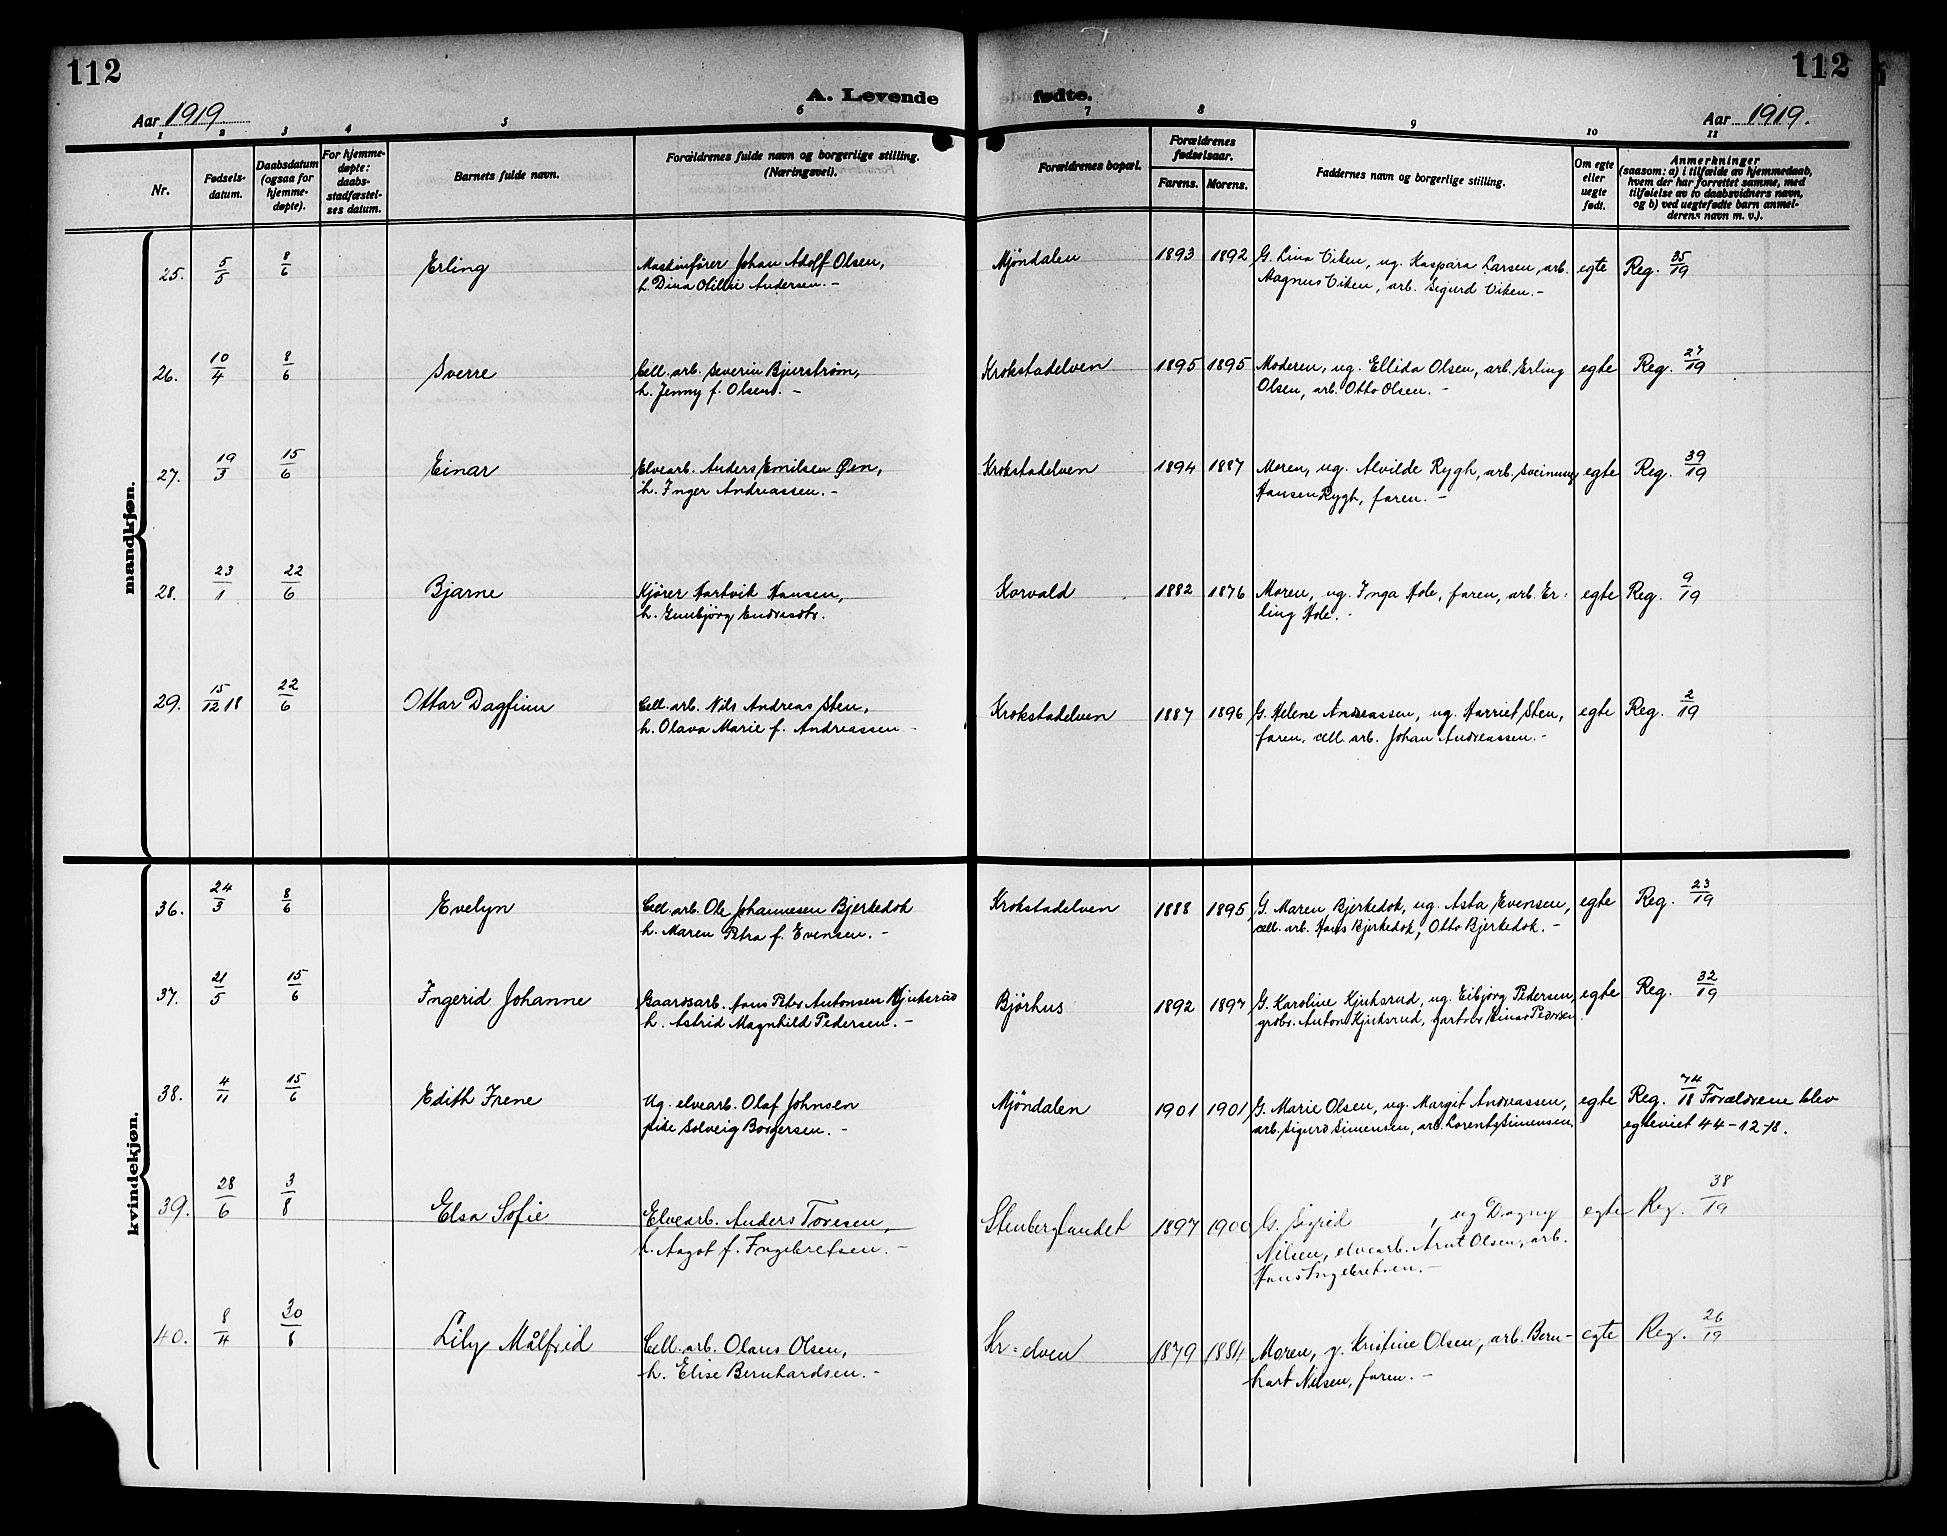 112
112
A. Levende
fødte.
Aar 1919
Aar 1919.
1 2 3 4 5 6 7 8 9 10 11
Nr.
Fødsels-
datum.
Daabsdatum
(ogsaa for
hjemme-
døpte).
For hjemme-
døpte:
daabs-
stadfæstel-
ses datum.
Barnets fulde navn.
Forældrenes fulde navn og borgerlige stilling.
(Næringsvei).
Forældrenes bopæl.
Forældrenes
fødselsaar.
Farens. Morens.
Faddernes navn og borgerlige stilling.
Om egte
eller
uegte
født.
Anmerkninger
(saasom: a) i tilfælde av hjemmedaab,
hvem der har forrettet samme, med
tilføielse av to daabsvidners navn,
og b) ved uegtefødte barn anmel-
derens navn m. v.).
mandkjøn.
25. 5/5 8/6 Erling Maskinfører Johan Adolf Olsen, Mjöndalen 1893 1892 G. Lina Viken, ug. Kaspara Larsen, arb. egte Reg. 35/19
h. Dina Otilie Andersen. - Magnus Viken, arb. Sigurd Viken. -
26. 10/4 8/6 Sverre Cell. arb. Severin Bjurström, Krokstadelven 1895 1895 Moderen, ug. Ellida Olsen, arb. Erling egte Reg. 27/19
h. Jenny f. Olsen. - Olsen, arb. Otto Olsen. -
27. 19/3 15/6 Einar Elvearb. Anders Emilsen Øen, Krokstadelven 1894 1887 Moren, ug. Alvilde Rygh, arb. Sveinung egte Reg. 39/19
h. Inger Andreassen. - Hansen Rygh, faren. -
28. 23/1 22/6 Bjarne Kjører Hartvik Hansen, Korvald 1882 1876 Moren, ug. Inga Hole, faren, arb. Er- egte Reg. 9/19
h. Gunbjörg Endresdtr. ling Hole. -
29. 15/12 18 22/6 Ottar Dagfinn Cell. arb. Nils Andreas Sten, Krokstadelven 1887 1896 G. Helene Andreassen, ug. Harriet Sten, egte Reg. 2/19
h. Olava Marie f. Andreassen - faren, cell. arb. Johan Andreassen. -
kvindekjøn.
36. 24/3 8/6 Evelyn Cell. arb. Ole Johannesen Bjerkedok Krokstadelven 1888 1895 G. Maren Bjerkedok, ug. Asta Evensen, egte Reg. 23/19
h. Maren Petra f. Evensen. - cell. arb. Hans Bjerkedok, Otto Bjerkedok. -
37. 21/5 15/6 Ingerid Johanne Gaardsarb. Hans Peter Antonsen Kjuksrud Björhus 1892 1897 G. Karoline Kjuksrud, ug. Eibjørg Pedersen, egte Reg. 32/19
h. Astrid Magnhild Pedersen. - grdbr. Anton Kjuksrud, gartner Einar Pedersen
38. 4/11 15/6 Edith Irene Ug. elvearb. Olaf Johnsen Mjöndalen 1901 1901 G. Marie Olsen, ug. Margit Andreassen, egte Reg. 74/18 Forældrene blev
pike Solveig Borgersen. - arb. Sigurd Simensen, arb. Lorentz Simensen. egteviet 44-12-18.
39. 28/6 3/8 Elsa Sofie Elvearb. Anders Toresen, Stenberglandet 1897 1900 G. Sigrid , ug Dagny egte Reg. 38/19
h. Aagot f. Ingebretsen. - Nilsen, elvearb. Arnt Olsen, arb.
Hans Ingebretsen. -
40. 8/4 30/8 Lily Målfrid Cell. arb. Olaus Olsen, Kr=elven 1879 1884 Moren, g. Kristine Olsen, arb. Bern- egte Reg. 26/19
h. Elise Bernhardsen. - hart Nilsen, faren. -